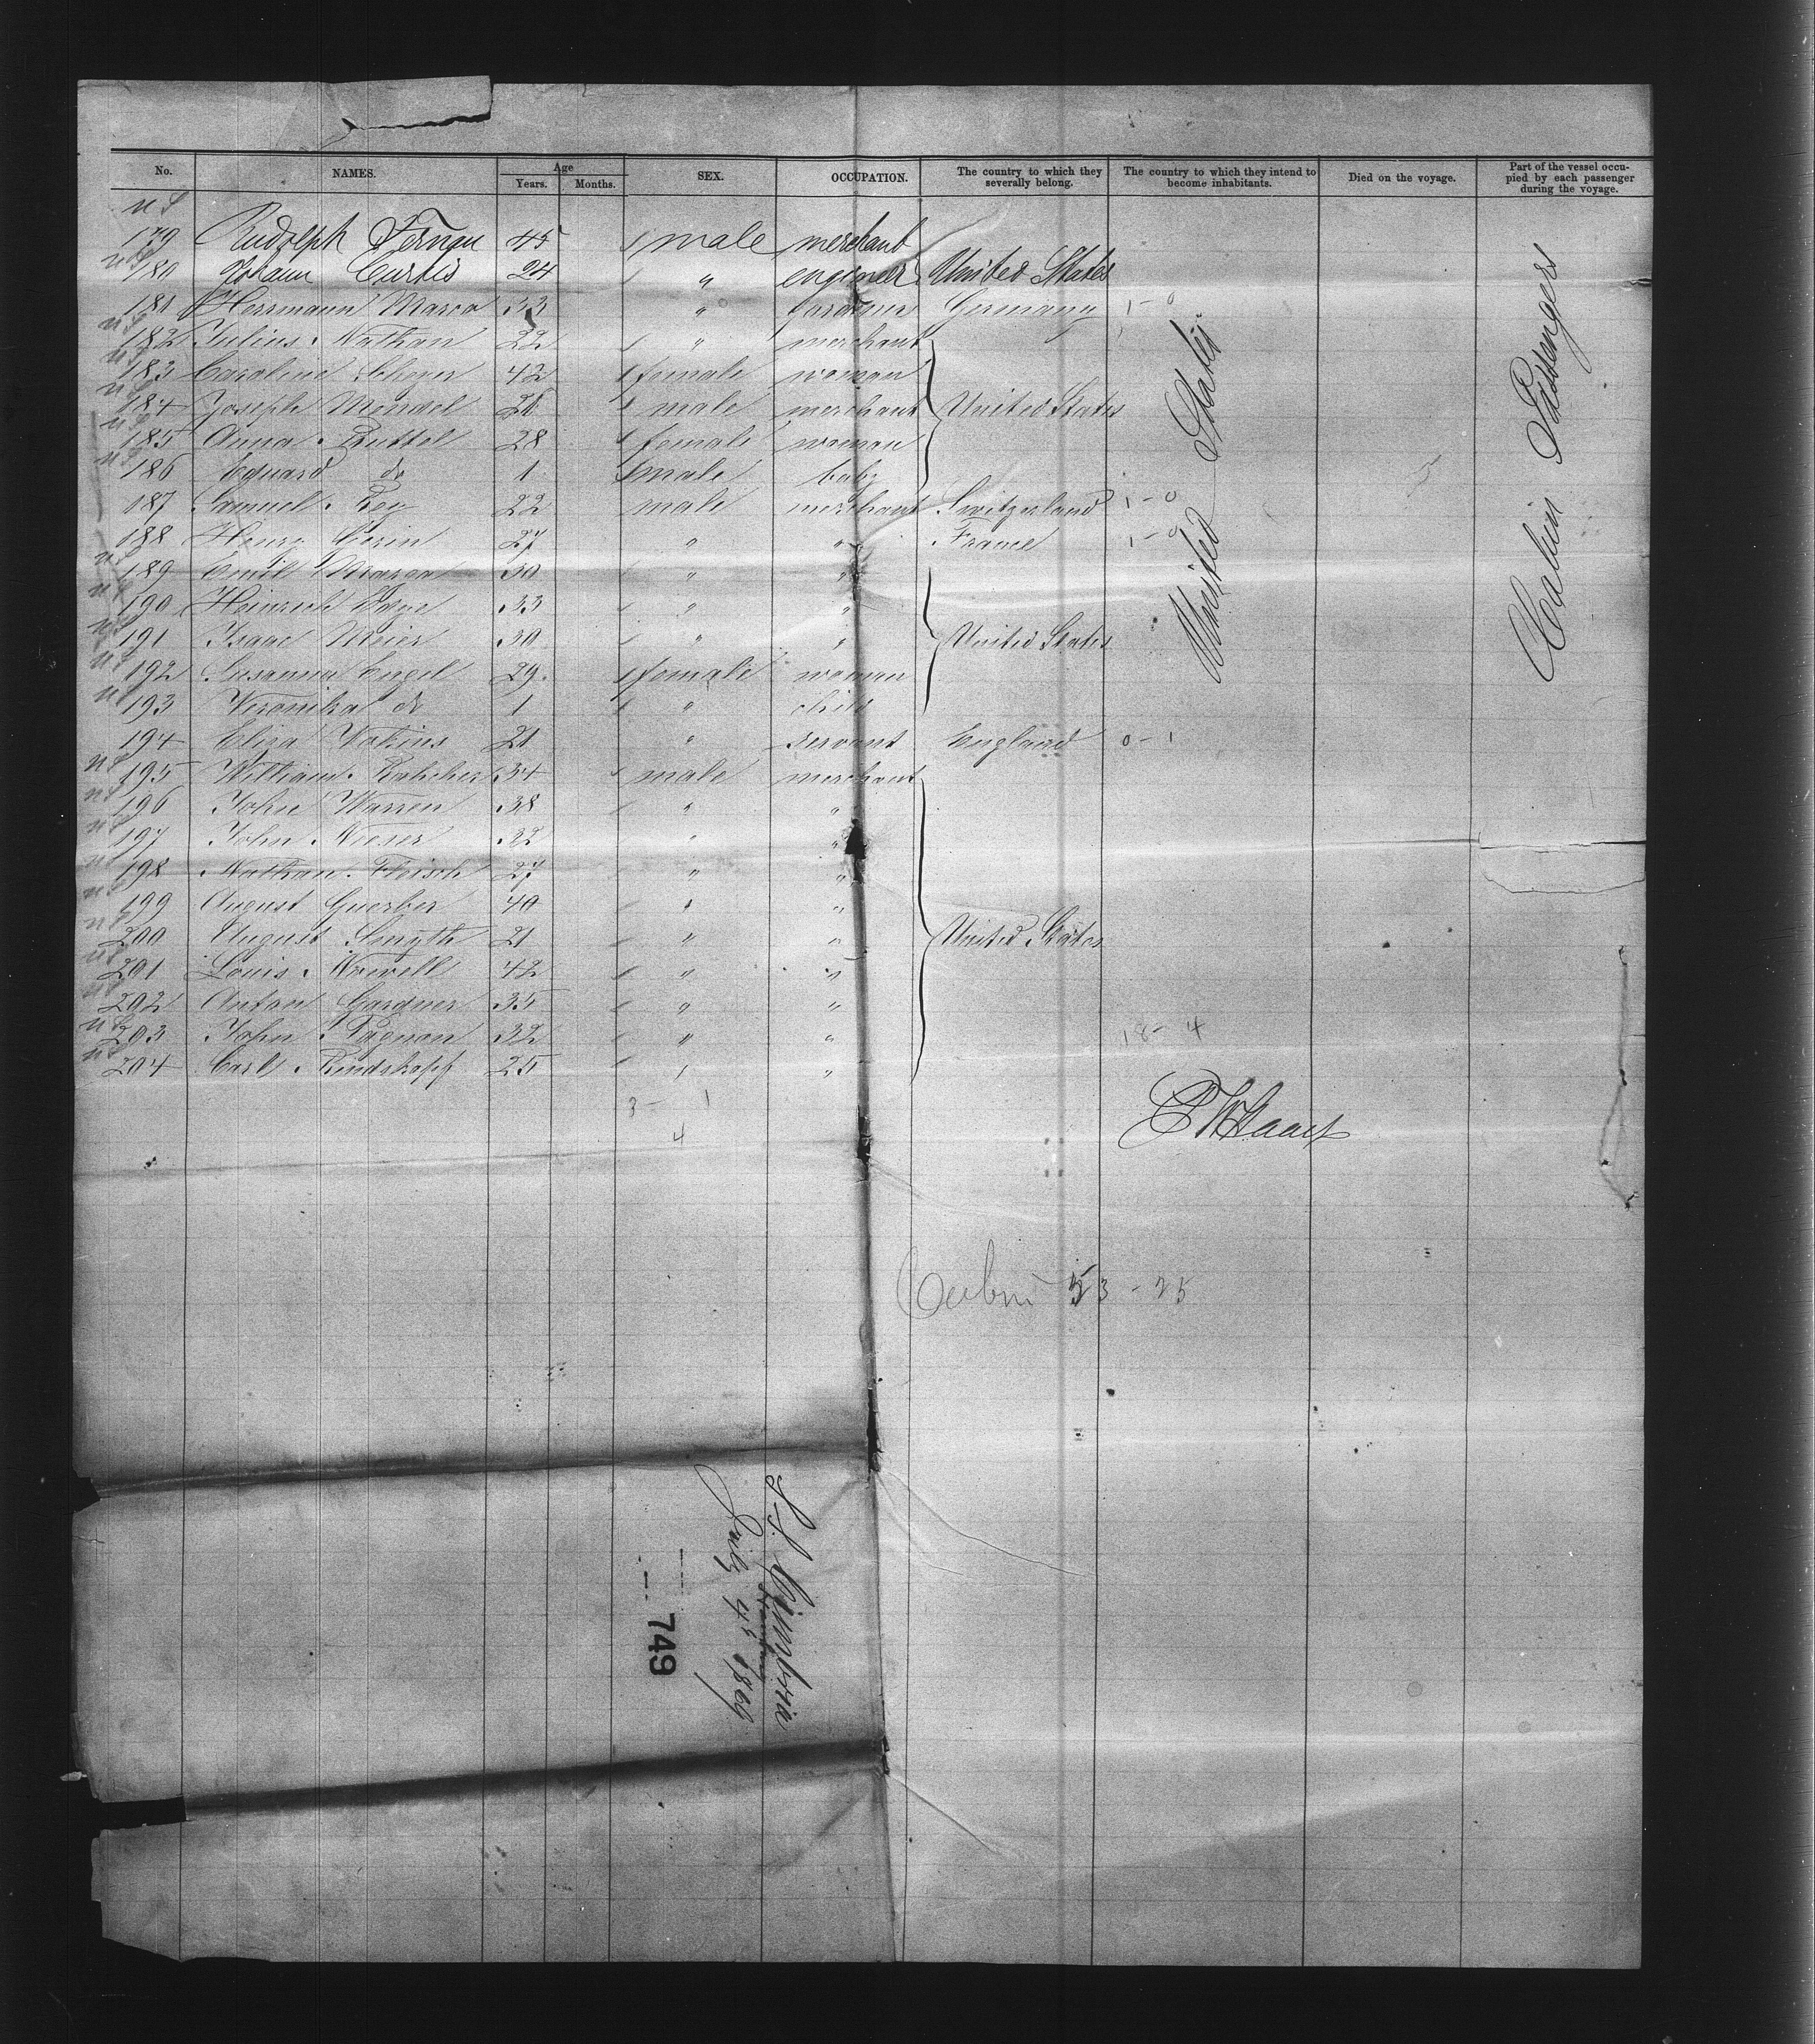 No. NAMES. Age Years. Months. SEX. OCCUPATION. The country to which they severally belong. The country to which they intend to become inhabitants. Died on the voyage. Part of the vessel occupied by each passenger during the voyage.
179 Rudolph 45 male merchant
180 Johann Curtis 24 " engineer United States
181 Herrmann 33 " Germany 1-0
182 Julius Nathan 22 " merchant
183 Caroline 42 female woman
184 Joseph Mendel 26 male merchant United States
185 Anna Buttel 28 female woman
186 Eduard do 1 male baby
187 Samuel Rey 22 male merchant Switzerland 1-0
188 Henry 27 " " France 1-0
189 Emil 30 " "
190 Heinrich 33 " "
191 Isaac Meier 30 " " United States
192 Susanna Engel 29 female woman
193 Veronika do 1 " child
194 Eliza 21 " servant England 0-1
195 William 34 male merchant
196 John Warren 38 " "
197 John 32 " "
198 Nathan Fleisch 27 " "
199 August Guerber 40 " "
200 August Smyth 21 " " United States
201 Louis Norwell 42 " "
202 Anton Gardner 35 " "
203 John Pagnon 32 " " 18-4
204 Carl Rindskopf 25 " "
United States
Cabin Passengers
3-1
4
Cabin 53-25
S.S. Cimbria
Hamburg
July 4th 1869
749